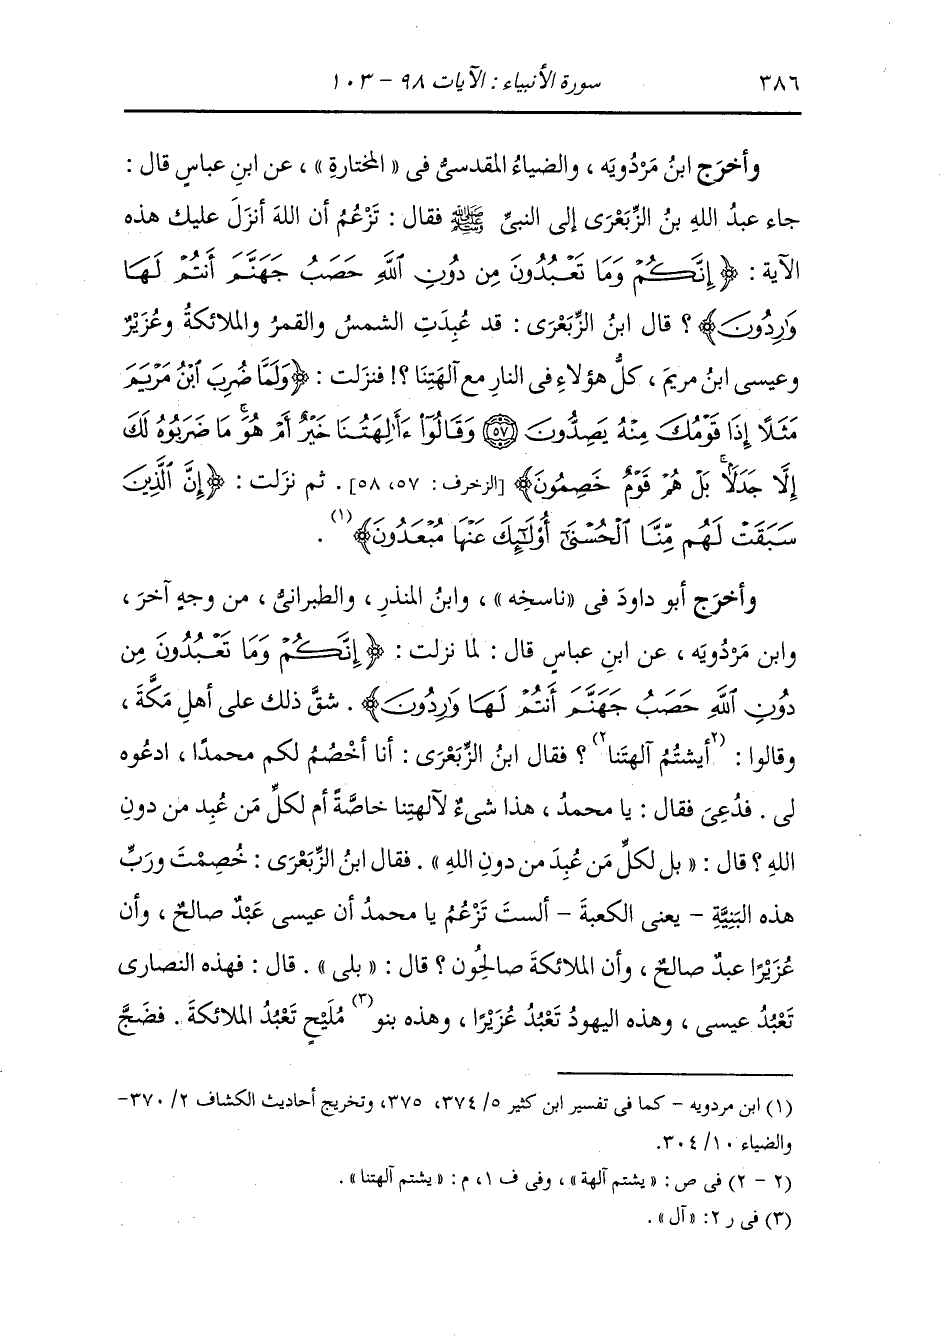 ٣٨٦ سورة الأنبياء : الآيات ٩٨ - ١٠٣
وأخرَج ابنُ مَرْدُويَه ، والضياءُ المقدسىُّ فى « المختارةِ » ، عن ابنِ عباسٍ قال :
جاء عبدُ اللهِ بنُ الزِّبَعْرَى إلى النبىِّ ﷺ فقال : تَزْعُمُ أن اللهَ أنزَلَ عليك هذه
الآية : ﴿ إِنَّكُمْ وَمَا تَعْبُدُونَ مِن دُونِ ٱللَّهِ حَصَبُ جَهَنَّمَ أَنتُمْ لَهَا
وَٰرِدُونَ﴾ ؟ قال ابنُ الزِّبَعْرَى : قد عُبِدَتِ الشمسُ والقمرُ والملائكةُ وعُزَيْرٌ
وعيسى ابنُ مريمَ ، كلُّ هؤلاءِ فى النارِ مع آلهَتِنَا ؟! فنزَلت : ﴿وَلَمَّا ضُرِبَ ٱبْنُ مَرْيَمَ
مَثَلًا إِذَا قَوْمُكَ مِنْهُ يَصِدُّونَ ۝٥٧ وَقَالُوٓا۟ ءَأَٰلِهَتُنَا خَيْرٌ أَمْ هُوَ ۚ مَا ضَرَبُوهُ لَكَ
إِلَّا جَدَلًۢا ۚ بَلْ هُمْ قَوْمٌ خَصِمُونَ﴾ [الزخرف : ٥٧، ٥٨] . ثم نزَلت : ﴿إِنَّ ٱلَّذِينَ
سَبَقَتْ لَهُم مِّنَّا ٱلْحُسْنَىٰٓ أُو۟لَٰٓئِكَ عَنْهَا مُبْعَدُونَ﴾ (١) .
وأخرَج أبو داودَ فى «ناسخِه» ، وابنُ المنذرِ ، والطبرانىُّ ، من وجهٍ آخرَ ،
وابن مَرْدُويَه ، عن ابنِ عباسٍ قال : لما نزلت : ﴿ إِنَّكُمْ وَمَا تَعْبُدُونَ مِن
دُونِ ٱللَّهِ حَصَبُ جَهَنَّمَ أَنتُمْ لَهَا وَٰرِدُونَ﴾ . شقَّ ذلك على أهلِ مَكَّةَ ،
وقالوا : (٢أيشتُمُ آلهتَنا٢) ؟ فقال ابنُ الزِّبَعْرَى : أنا أخْصُمُ لكم محمدًا ، ادعُوه
لى . فدُعِىَ فقال : يا محمدُ ، هذا شىءٌ لآلهتِنا خاصَّةً أم لكلِّ مَن عُبِد من دونِ
اللهِ ؟ قال : « بل لكلِّ مَن عُبِدَ من دونِ اللهِ » . فقال ابنُ الزِّبَعْرَى : خُصِمْتَ وربِّ
هذه البَنِيَّةِ - يعنى الكعبةَ - ألستَ تَزْعُمُ يا محمدُ أن عيسى عَبْدٌ صالحٌ ، وأن
عُزَيْرًا عبدٌ صالحٌ ، وأن الملائكةَ صالحُون ؟ قال : « بلى » . قال : فهذه النصارى
تَعْبُدُ عيسى ، وهذه اليهودُ تَعْبُدُ عُزَيْرًا ، وهذه بنو(٣) مُلَيْحٍ تَعْبُدُ الملائكةَ . فضَجَّ
(١) ابن مردويه - كما فى تفسير ابن كثير ٥/ ٣٧٤، ٣٧٥، وتخريج أحاديث الكشاف ٢/ ٣٧٠-
والضياء ١٠/ ٣٠٤.
(٢ - ٢) فى ص : « يشتم آلهة » ، وفى ف ١، م : « يشتم آلهتنا » .
(٣) فى ر ٢: «آل» .